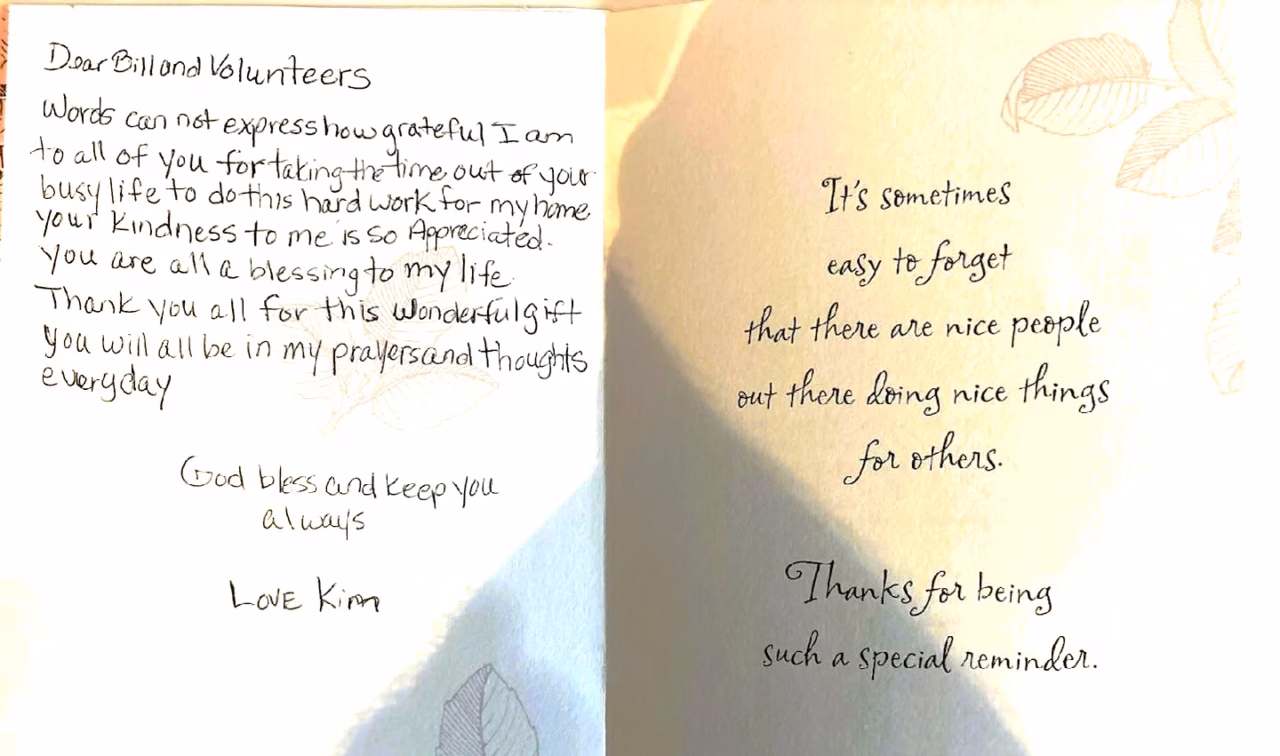 Dear Bill and Volunteers
Words can not express how grateful I am
to all of you for taking the time out of your
busy life to do this hard work for my home
your kindness to me is so Appreciated.
You are all a blessing to my life.
Thank you all for this wonderful gift
You will all be in my prayers and thoughts
everyday
God bless and keep you
always
Love Kim
It's sometimes
easy to forget
that there are nice people
out there doing nice things
for others.
Thanks for being
such a special reminder.